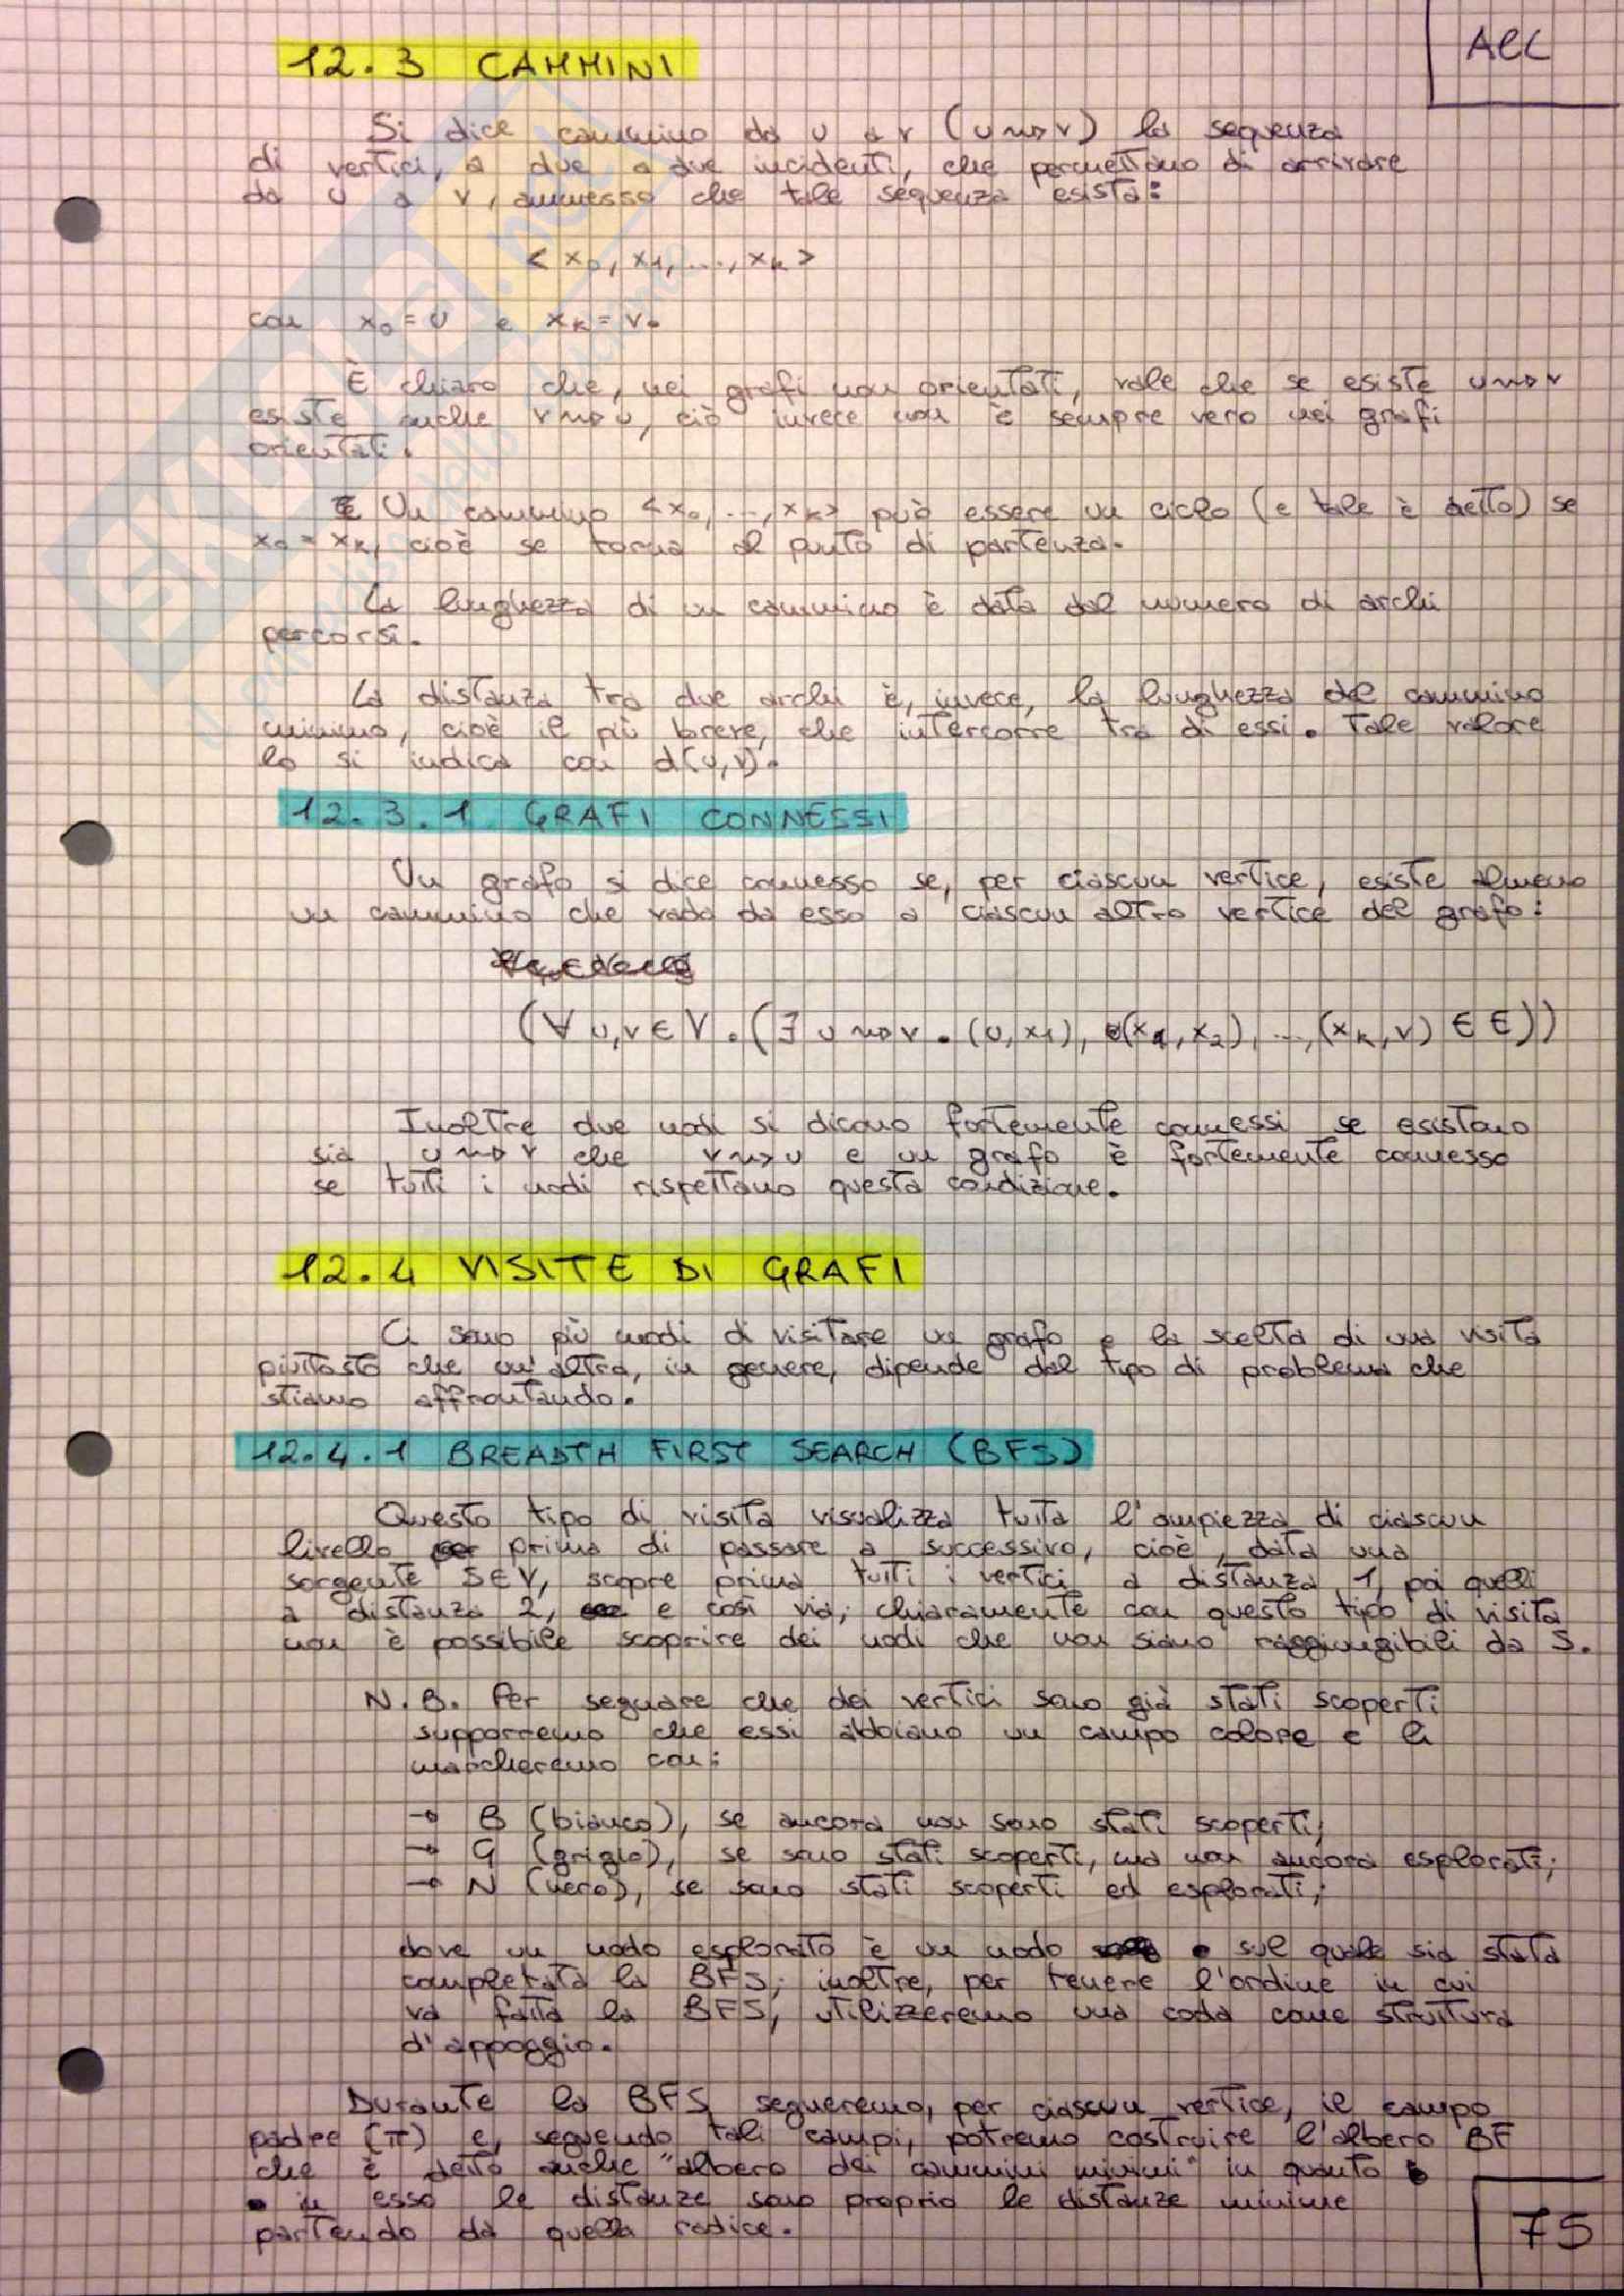 AEC
12.3 CAMMINI
Si dice cammino da u a v (u ⇝ v) la sequenza
di vertici, a due a due incidenti, che permettano di arrivare
da u a v, ammesso che tale sequenza esista:
< x₀, x₁, ..., xₖ >
con x₀ = u e xₖ = v.
È chiaro che, nei grafi non orientati, vale che se esiste u ⇝ v
esiste anche v ⇝ u, ciò invece non è sempre vero nei grafi
orientati.
Un cammino <x₀, ..., xₖ> può essere un ciclo (e tale è detto) se
x₀ = xₖ, cioè se torna al punto di partenza.
La lunghezza di un cammino è data dal numero di archi
percorsi.
La distanza tra due archi è, invece, la lunghezza del cammino
minimo, cioè il più breve, che intercorre tra di essi. Tale valore
lo si indica con d(u,v).
12.3.1 GRAFI CONNESSI
Un grafo si dice connesso se, per ciascun vertice, esiste almeno
un cammino che vada da esso a ciascun altro vertice del grafo:
(∀ u,v ∈ V . (∃ u ⇝ v . (u, x1), (x₁, x₂), ..., (xₖ, v) ∈ E))
Inoltre due nodi si dicono fortemente connessi se esistono
sia u ⇝ v che v ⇝ u e un grafo è fortemente connesso
se tutti i nodi rispettano questa condizione.
12.4 VISITE DI GRAFI
Ci sono più modi di visitare un grafo e la scelta di una visita
piuttosto che un'altra, in genere, dipende dal tipo di problema che
stiamo affrontando.
12.4.1 BREADTH FIRST SEARCH (BFS)
Questo tipo di visita visualizza tutta l'ampiezza di ciascun
livello prima di passare a successivo, cioè, data una
sorgente S∈V, scopre prima tutti i vertici a distanza 1, poi quelli
a distanza 2, e così via; chiaramente con questo tipo di visita
non è possibile scoprire dei nodi che non siano raggiungibili da S.
N.B. Per segnare che dei vertici sono già stati scoperti
supporremo che essi abbiano un campo colore e li
marcheremo con:
→ B (bianco), se ancora non sono stati scoperti;
→ G (grigio), se sono stati scoperti, ma non ancora esplorati;
→ N (nero), se sono stati scoperti ed esplorati;
dove un nodo esplorato è un nodo sul quale sia stata
completata la BFS; inoltre, per tenere l'ordine in cui
va fatta la BFS, utilizzeremo una coda come struttura
d'appoggio.
Durante la BFS segneremo, per ciascun vertice, il campo
padre (π) e, seguendo tali campi, potremo costruire l'albero BF
che è detto anche "albero dei cammini minimi" in quanto
in esso le distanze sono proprio le distanze minime
partendo da quella radice.
75